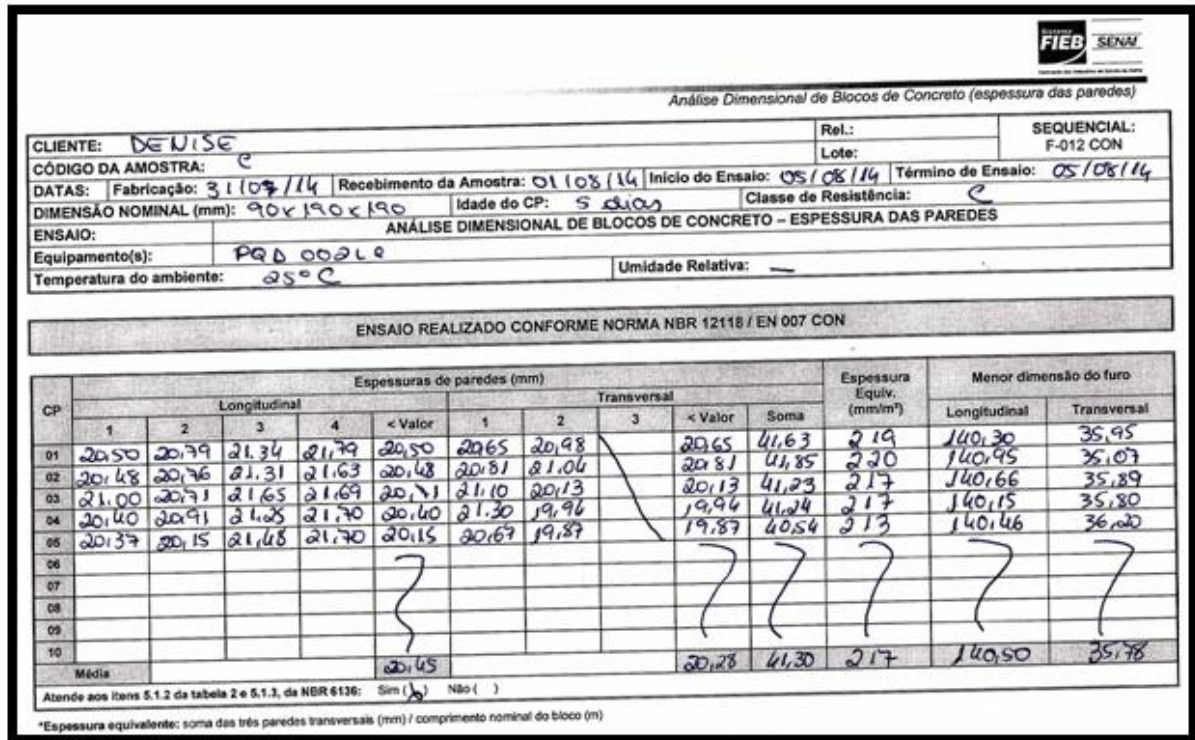 FIEB SENAI
Análise Dimensional de Blocos de Concreto (espessura das paredes)
CLIENTE: DENISE Rel.: SEQUENCIAL:
CÓDIGO DA AMOSTRA: C Lote: F-012 CON
DATAS: Fabricação: 31/07/14 Recebimento da Amostra: 01/08/14 Início do Ensaio: 05/08/14 Término de Ensaio: 05/08/14
DIMENSÃO NOMINAL (mm): 90x190x190 Idade do CP: 5 dias Classe de Resistência: C
ENSAIO: ANÁLISE DIMENSIONAL DE BLOCOS DE CONCRETO – ESPESSURA DAS PAREDES
Equipamento(s): PQD 002LQ
Temperatura do ambiente: 25°C Umidade Relativa: —
ENSAIO REALIZADO CONFORME NORMA NBR 12118 / EN 007 CON
CP Espessuras de paredes (mm) Espessura Equiv. (mm/m*) Menor dimensão do furo
Longitudinal Transversal Longitudinal Transversal
1 2 3 4 < Valor 1 2 3 < Valor Soma
01 20,50 20,79 21.34 21,79 20,50 20,65 20,98 20,65 41,63 219 140,30 35,95
02 20,48 20,76 21.31 21.63 20,48 20,81 21,04 20,81 41,85 220 140,95 35,07
03 21.00 20,71 21,65 21,69 20,71 21,10 20,13 20,13 41,23 217 140,66 35,89
04 20,40 20,91 21,25 21,70 20,40 21.30 19,94 19,94 41,24 217 140,15 35,80
05 20,37 20,15 21,48 21,70 20,15 20,67 19,87 19,87 40,54 213 140,46 36,20
06
07
08
09
10
Média 20,45 20,28 41,30 217 140,50 35,78
Atende aos itens 5.1.2 da tabela 2 e 5.1.3, da NBR 6136: Sim ( ) Não ( )
*Espessura equivalente: soma das três paredes transversais (mm) / comprimento nominal do bloco (m)